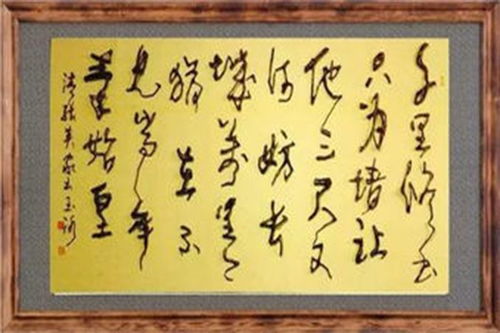 千里修书
只为墙让
他三尺又
何妨长
城万里今
犹在不
见当年
秦始皇
清张英家书